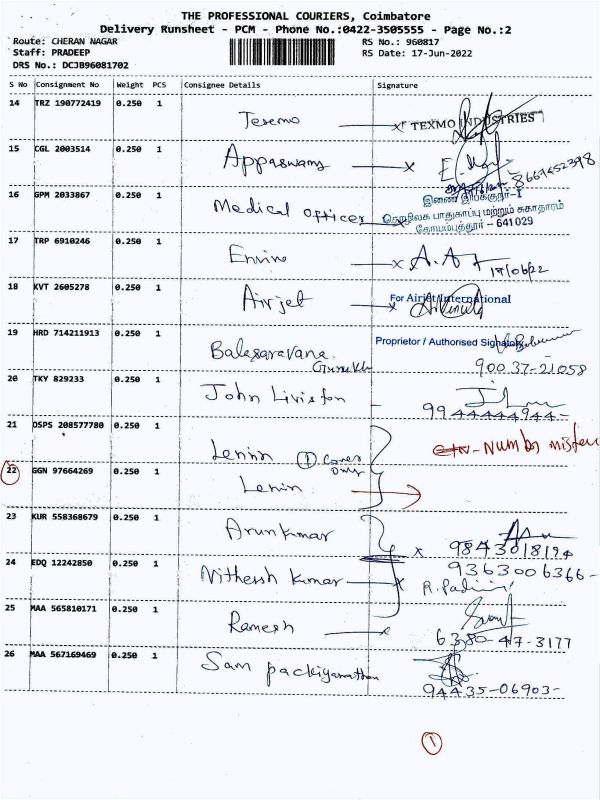 THE PROFESSIONAL COURIERS, Coimbatore
Delivery Runsheet - PCM - Phone No.:0422-3505555 - Page No.:2
Route: CHERAN NAGAR
RS No.: 960817
Staff: PRADEEP
RS Date: 17-Jun-2022
DRS No.: DCJB96081702
S No Consignment No Weight PCS Consignee Details Signature
14 TRZ 190772419 0.250 1 Texmo x TEXMO INDUSTRIES
15 CGL 2003514 0.250 1 Appaswamy x
8667452398
16 GPM 2033867 0.250 1 Medical officer x
இணை இயக்குநர்-I
தொழிலக பாதுகாப்பு மற்றும் சுகாதாரம்
கோயம்புத்தூர் - 641 029
17 TRP 6910246 0.250 1 Enviro x
17/06/22
18 KVT 2605278 0.250 1 Airjet x For Airjet International
19 HRD 714211913 0.250 1 Proprietor / Authorised Signatory
Balasaravana
90037-21058
20 TKY 829233 0.250 1 John Liviston
9944444944-
21 OSPS 208577780 0.250 1 Lenin 1 Cover only
Number
22 GGN 97664269 0.250 1 Lenin
23 KUR 558368679 0.250 1 Arunkumar x 9843018194
24 EDQ 12242850 0.250 1 Nithersh kumar x 9363006366-
R. Padmini
25 MAA 565810171 0.250 1 Ramesh
6380-47-3177
26 MAA 567169469 0.250 1 Sam packiyanathan
94435-06903-
1